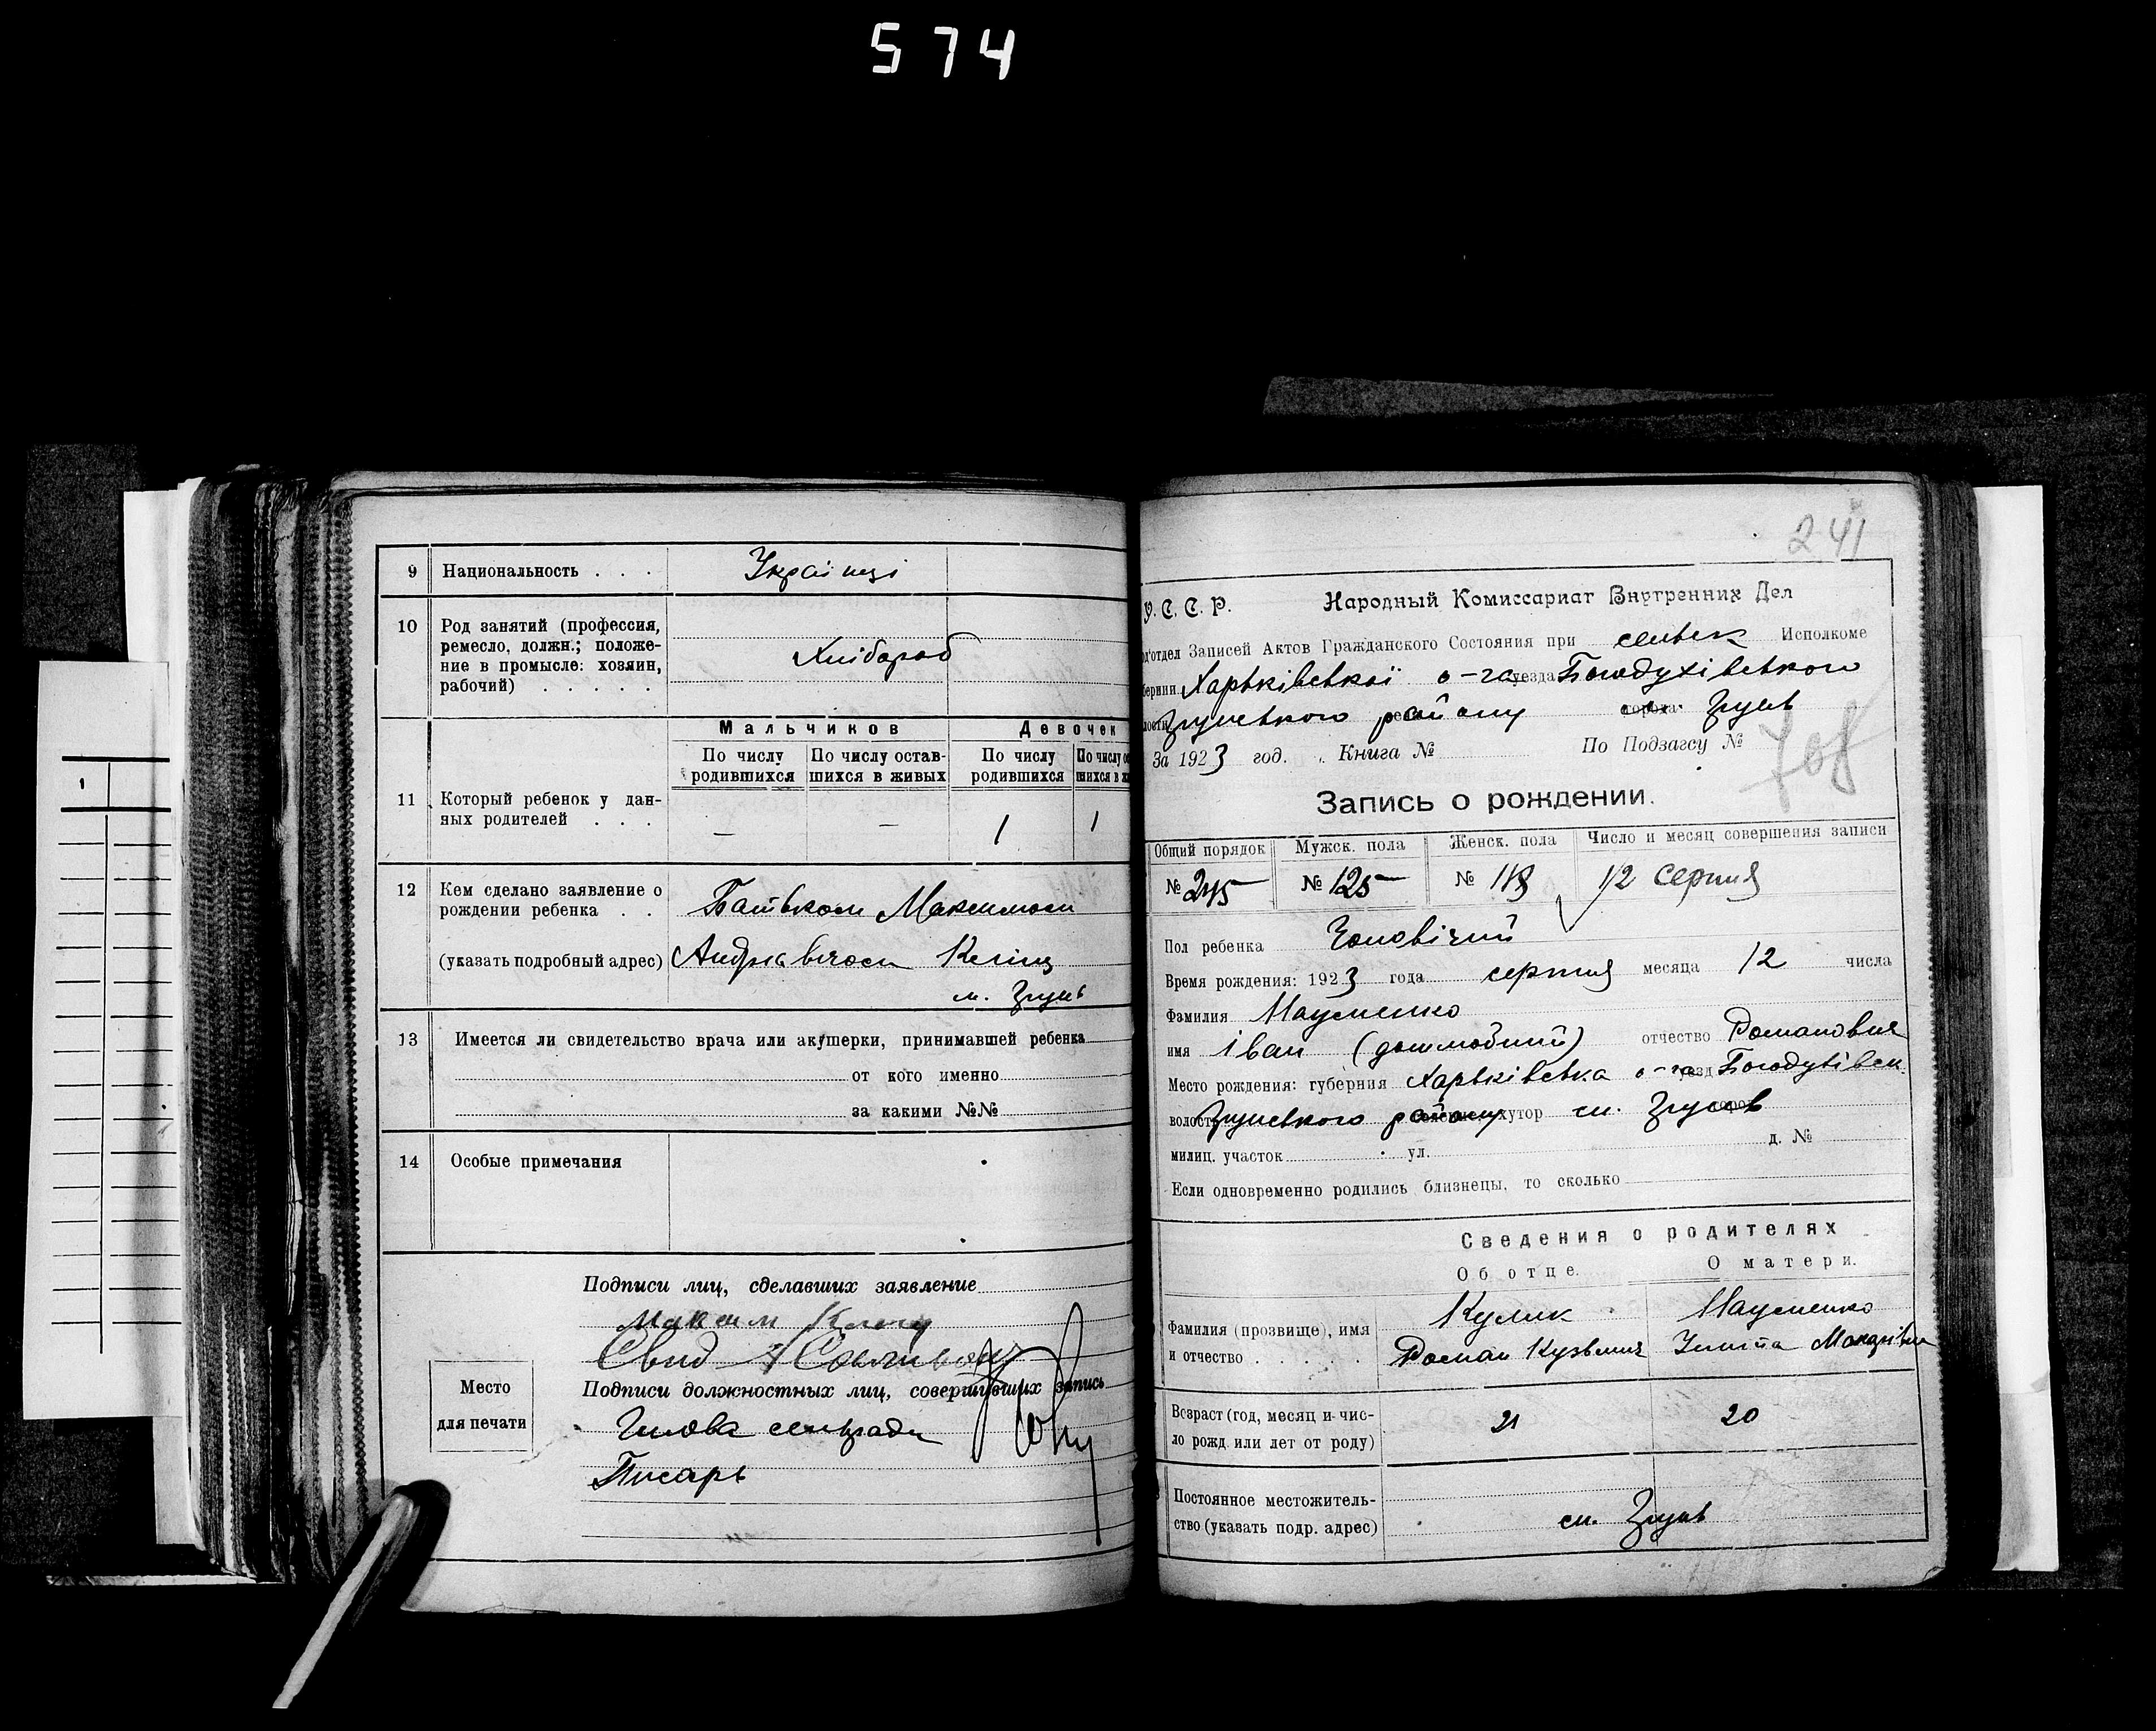 574
9 Национальность . . . Українці
10 Род занятий (профессия,
ремесло, должн.; положе-
ние в промысле: хозяин,
рабочий) . . . . .
Хлібороб
Мальчиков Девочек
По числу родившихся По числу остав-шихся в живых По числу родившихся По числу
11 Который ребенок у дан-
ных родителей . . . — — 1 1
12 Кем сделано заявление о
рождении ребенка . . Батьком Максимом
(указать подробный адрес)
13 Имеется ли свидетельство врача или акушерки, принимавшей ребенка
от кого именно
за какими №№
14 Особые примечания
Подписи лиц, сделавших заявление
Максим
Свид
Подписи должностных лиц, совершивших запись
Голова сельради
Писарь
Место
для печати
1
241
У. С. С. Р. Народный Комиссариат Внутренних Дел
отдел Записей Актов Гражданского Состояния при Исполкоме
Харьківської о-га уезда Богодухівського
району города
За 1923 год. Книга № По Подзагсу №
708
Запись о рождении.
Общий порядок Мужск. пола Женск. пола Число и месяц совершения записи
№ 245 № 125 № 12 серпня
Пол ребенка Чоловічий
Время рождения: 1923 года серпня месяца 12 числа
Фамилия Науменко
имя Іван отчество Романович
Место рождения: губерния Харьківська о-га уезд Богодухівськ.
волость району хутор
милиц. участок ул. д. №
Если одновременно родились близнецы, то сколько
Сведения о родителях
Об отце. О матери.
Фамилия (прозвище), имя
и отчество . . . . .
Кулик Науменко
Роман Кузьмич Макарівна
Возраст (год, месяц и чис-
ло рожд. или лет от роду) 21 20
Постоянное местожитель-
ство (указать подр. адрес)